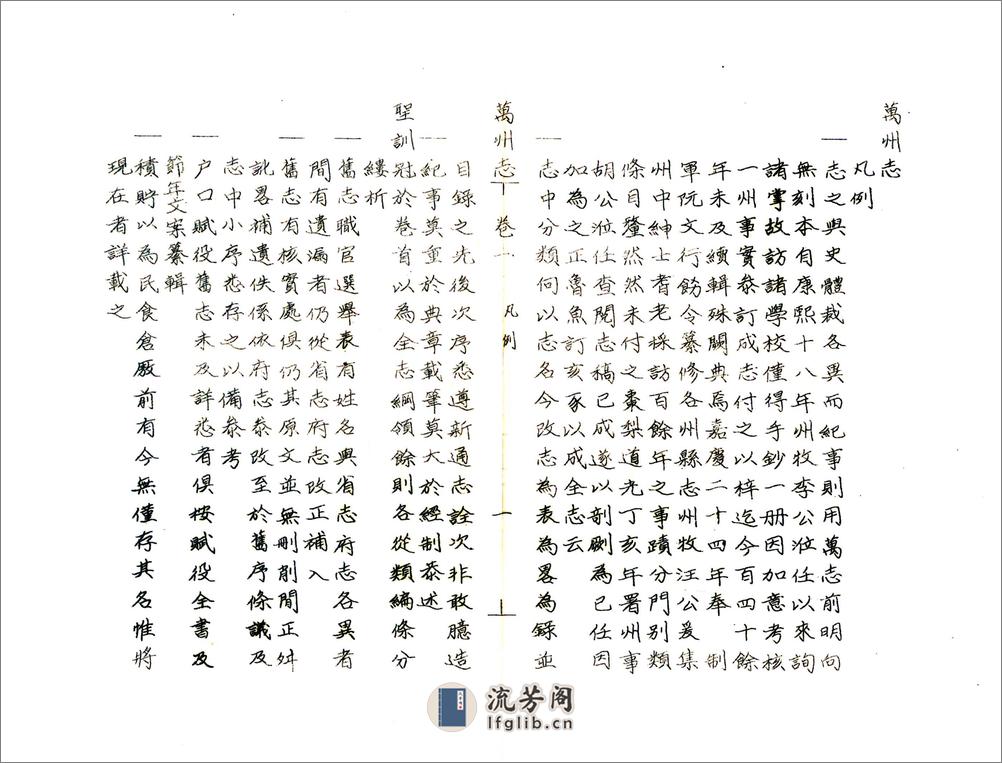 萬州志
凡例
一志之與史體裁各異而紀事則用萬志前明向
無刻本自康熙十八年州牧李公涖任以來詢
諸掌故訪諸學校僅得手鈔一册因加意考核
一州事實叅訂成志付之以梓迄今百四十餘
年未及續輯殊闕典焉嘉慶二十四年奉 制
軍阮文行飭令纂修各州縣志州牧汪公爰集
州中紳士耆老採訪百餘年之事蹟分門別類
條目釐然然未付之棗梨道光丁亥年署州事
胡公涖任查閱志稿已成遂以剞劂為已任因
加為之正魯魚訂亥豕以成全志云
一志中分類何以志名今改志為表為畧為錄並
萬州志 卷一 凡例 一
目錄之先後次序悉遵新通志詮次非敢臆造
一紀事莫重於典章載筆莫大於經制恭述
聖訓冠於卷首以為全志綱領餘則各從類編條分
縷析
一舊志職官選舉表有姓名與省志府志各異者
間有遺漏者仍從省志府志改正補入
一舊志有核實處俱仍其原文並無刪削間正舛
訛畧補遺佚係依府志叅改至於舊序條議及
志中小序悉存之以備叅考
一户口賦役舊志未及詳悉者俱按賦役全書及
節年文案纂輯
一積貯以為民食倉厫前有今無僅存其名惟將
現在者詳載之
流芳阁
lfglib.cn